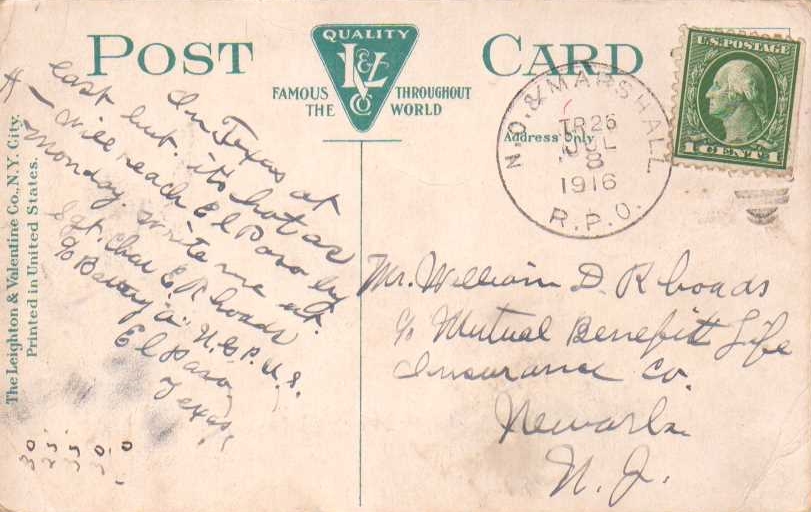 POST CARD
QUALITY
L&V
CO
FAMOUS THROUGHOUT
THE WORLD
Address Only
N.O. & MARSHALL
TR 26
JUL
8
1916
R.P.O.
U.S. POSTAGE
1 CENT 1
The Leighton & Valentine Co., N.Y. City.
Printed in United States.
In Texas at
last but it's hot as
H— will reach El Paso by
monday write me at.
Sgt. Chas E. Rhoads
c/o Battery "a" N.G.P. U.S.
El Paso
Texas,
Mr. William D. Rhoads
c/o Mutual Benefit Life
Insurance Co.
Newark
N. J.